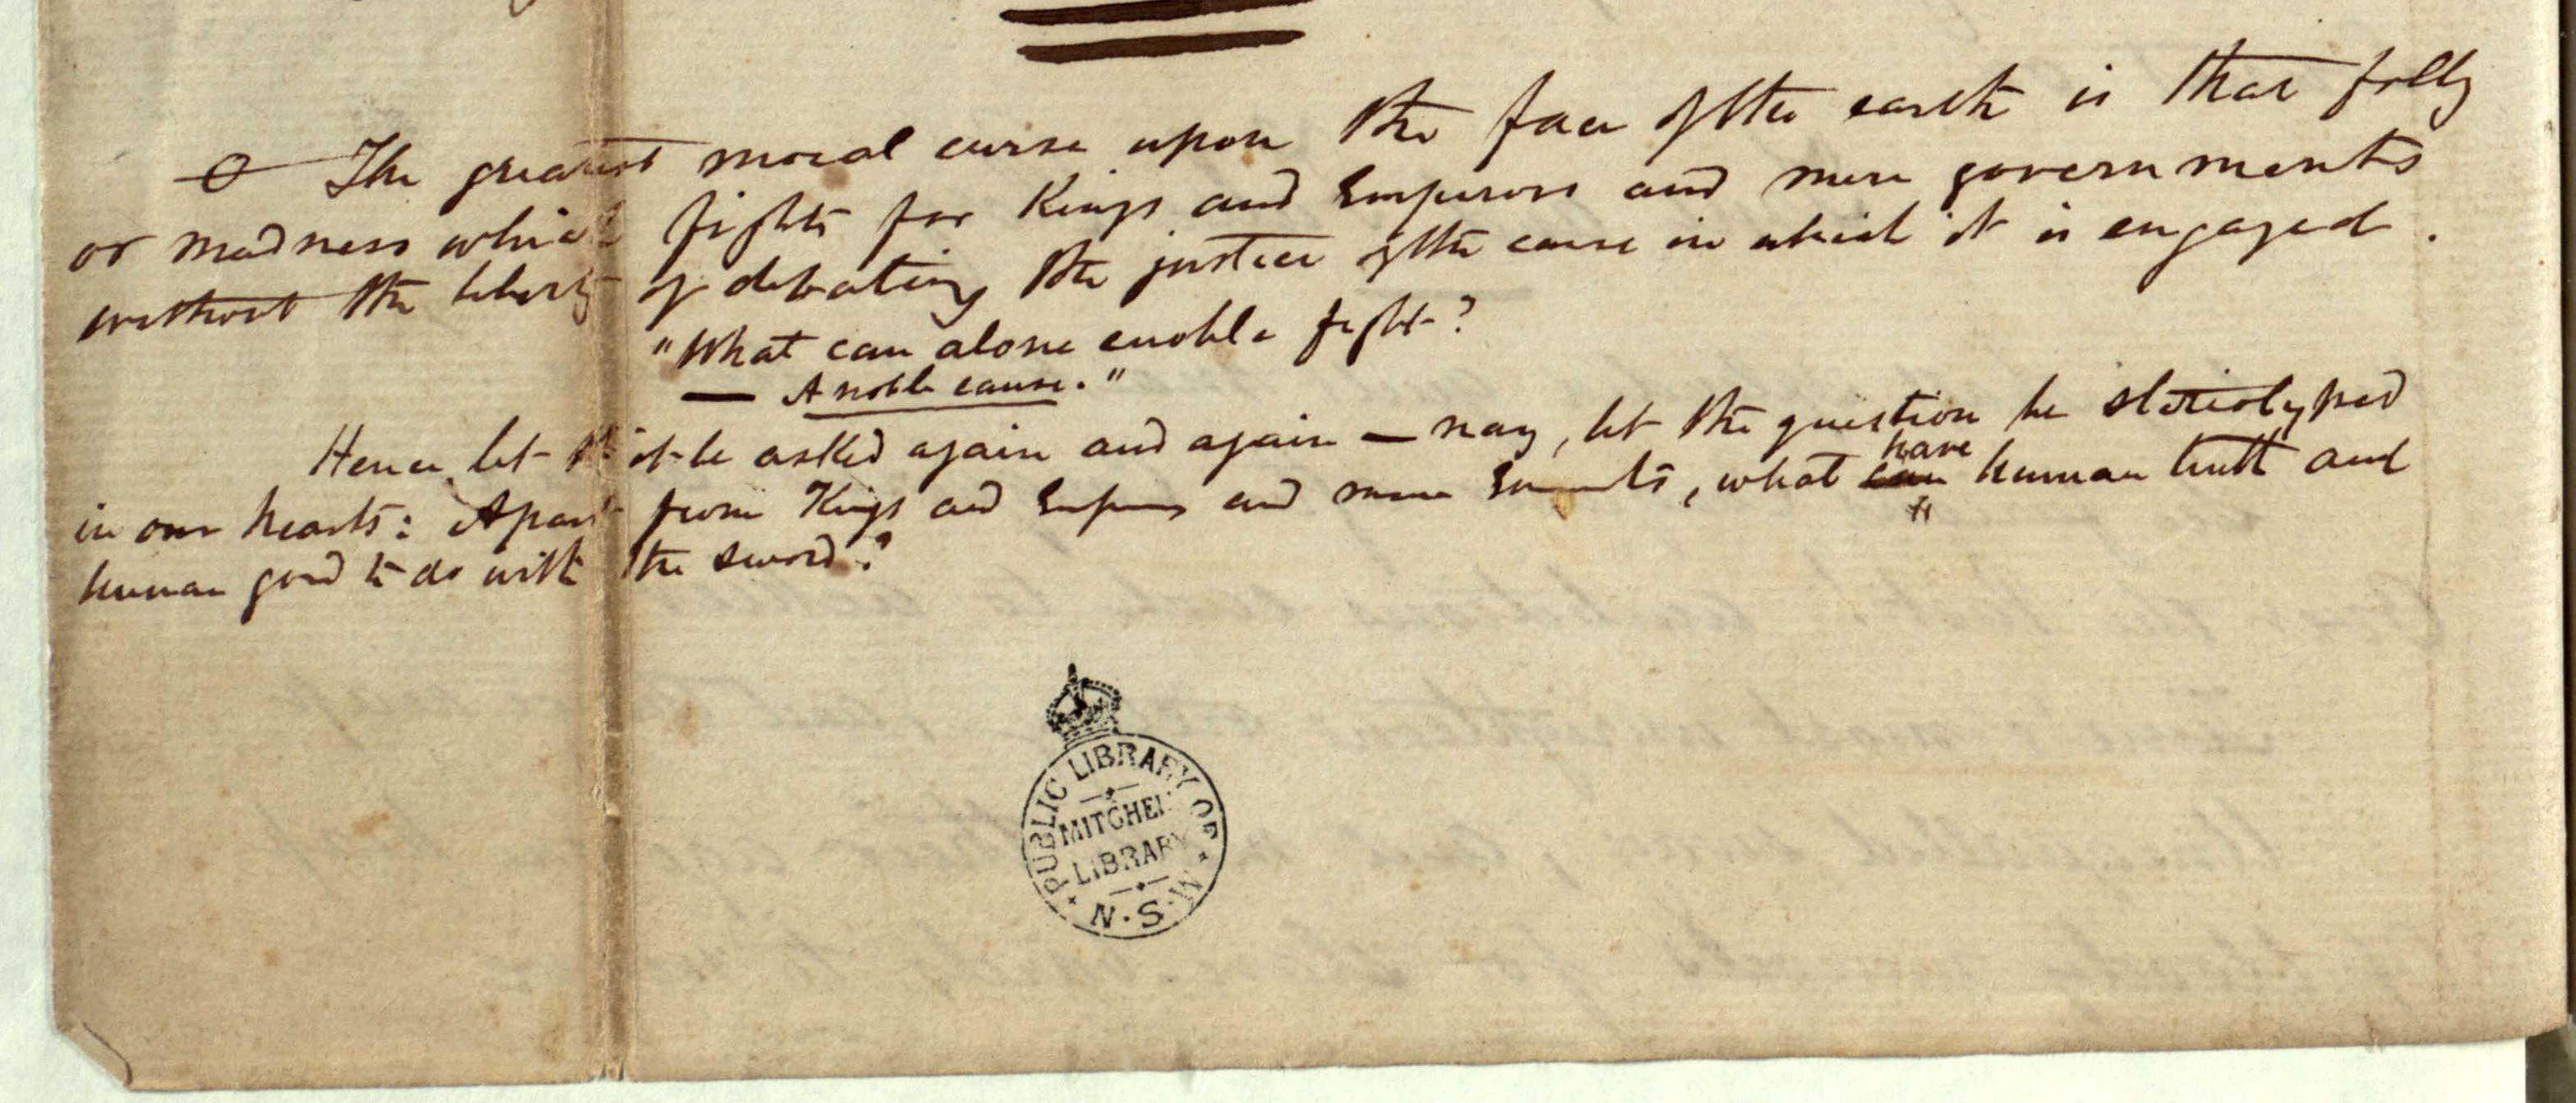 The greatest moral curse upon the face of the earth is that folly
or madness which fights for Kings and Emperors and mere governments
without the liberty of debating the justice of the cause in which it is engaged.
"What can alone enoble fight?
— A noble cause."
Hence let it be asked again and again — nay, let the question be steriotyped
have
in our hearts: Apart from Kings and Emperors and mere Governments, what can human truth and
human good to do with the sword?
PUBLIC LIBRARY OF N.S.W.
MITCHELL
LIBRARY